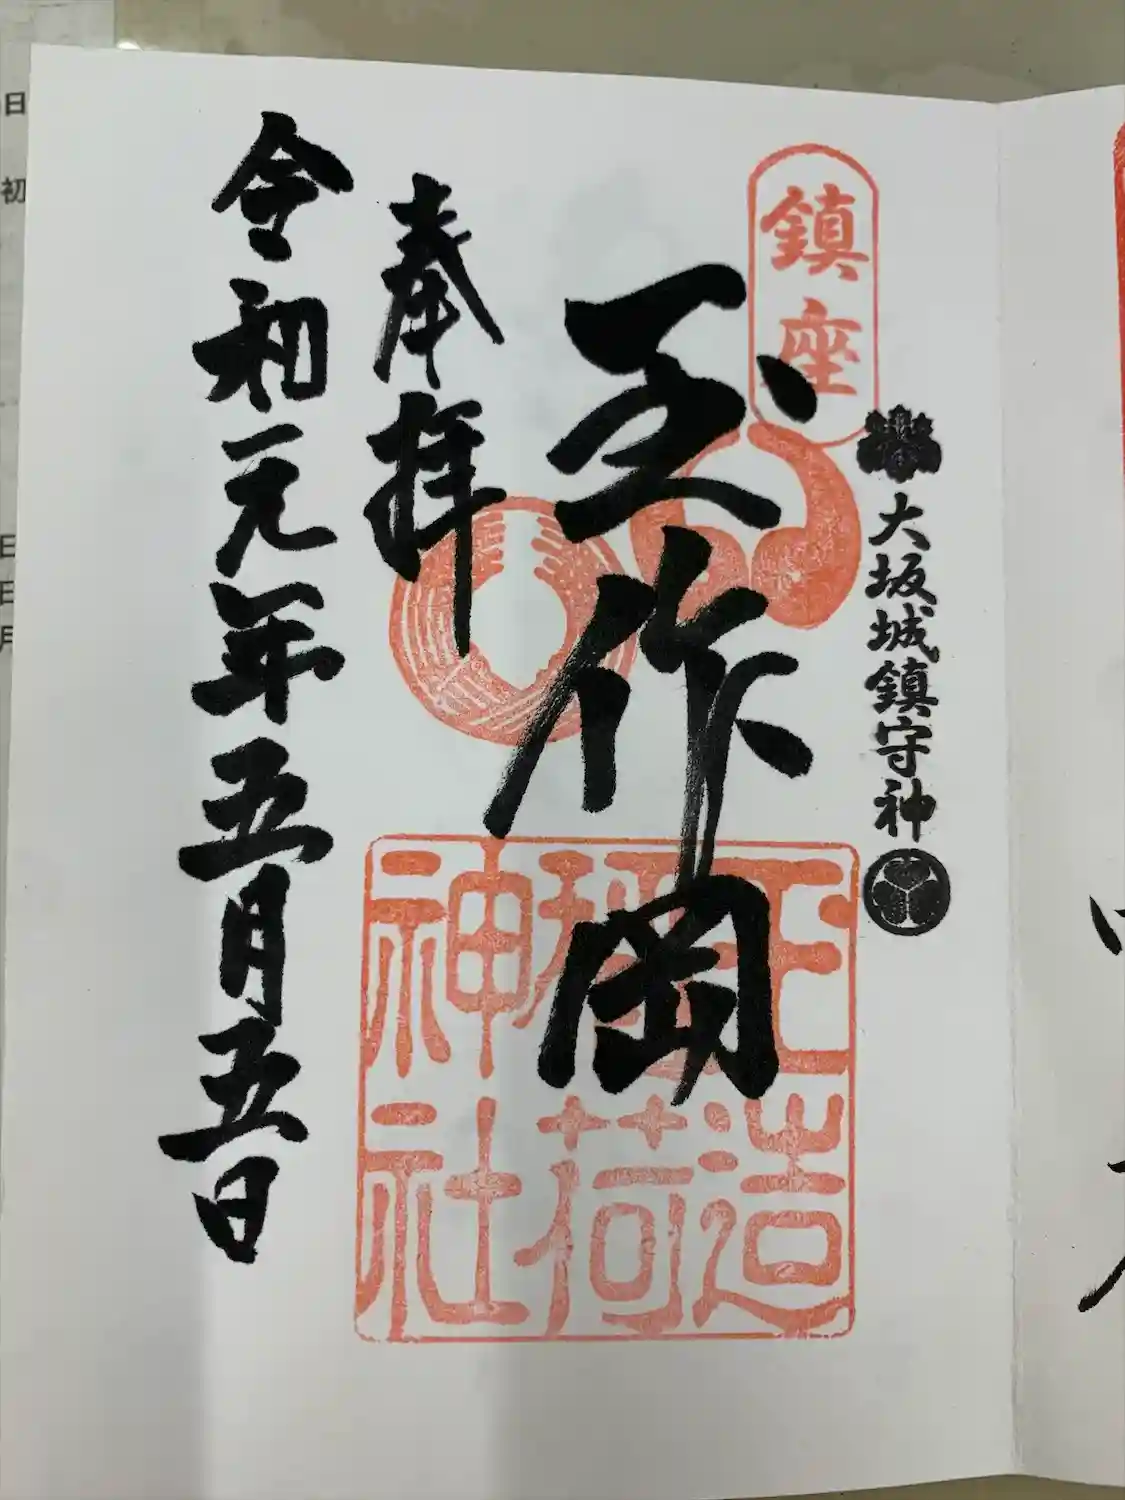 鎮座
大坂城鎮守神
玉作岡
玉造
稲荷
神社
奉拝
令和元年五月五日
日
初
日
日
月